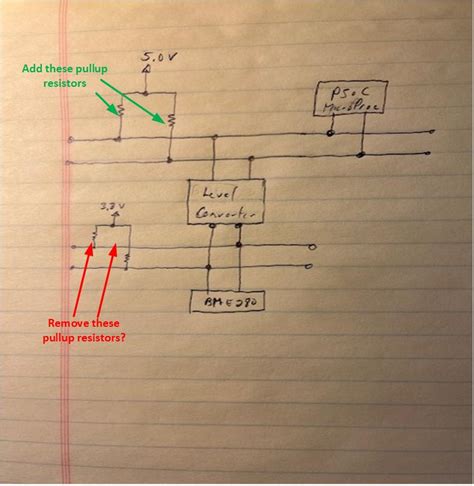 5.0V
Add these pullup
resistors
PSoC
MicroProc
Level
Converter
3.3V
BME280
Remove these
pullup resistors?